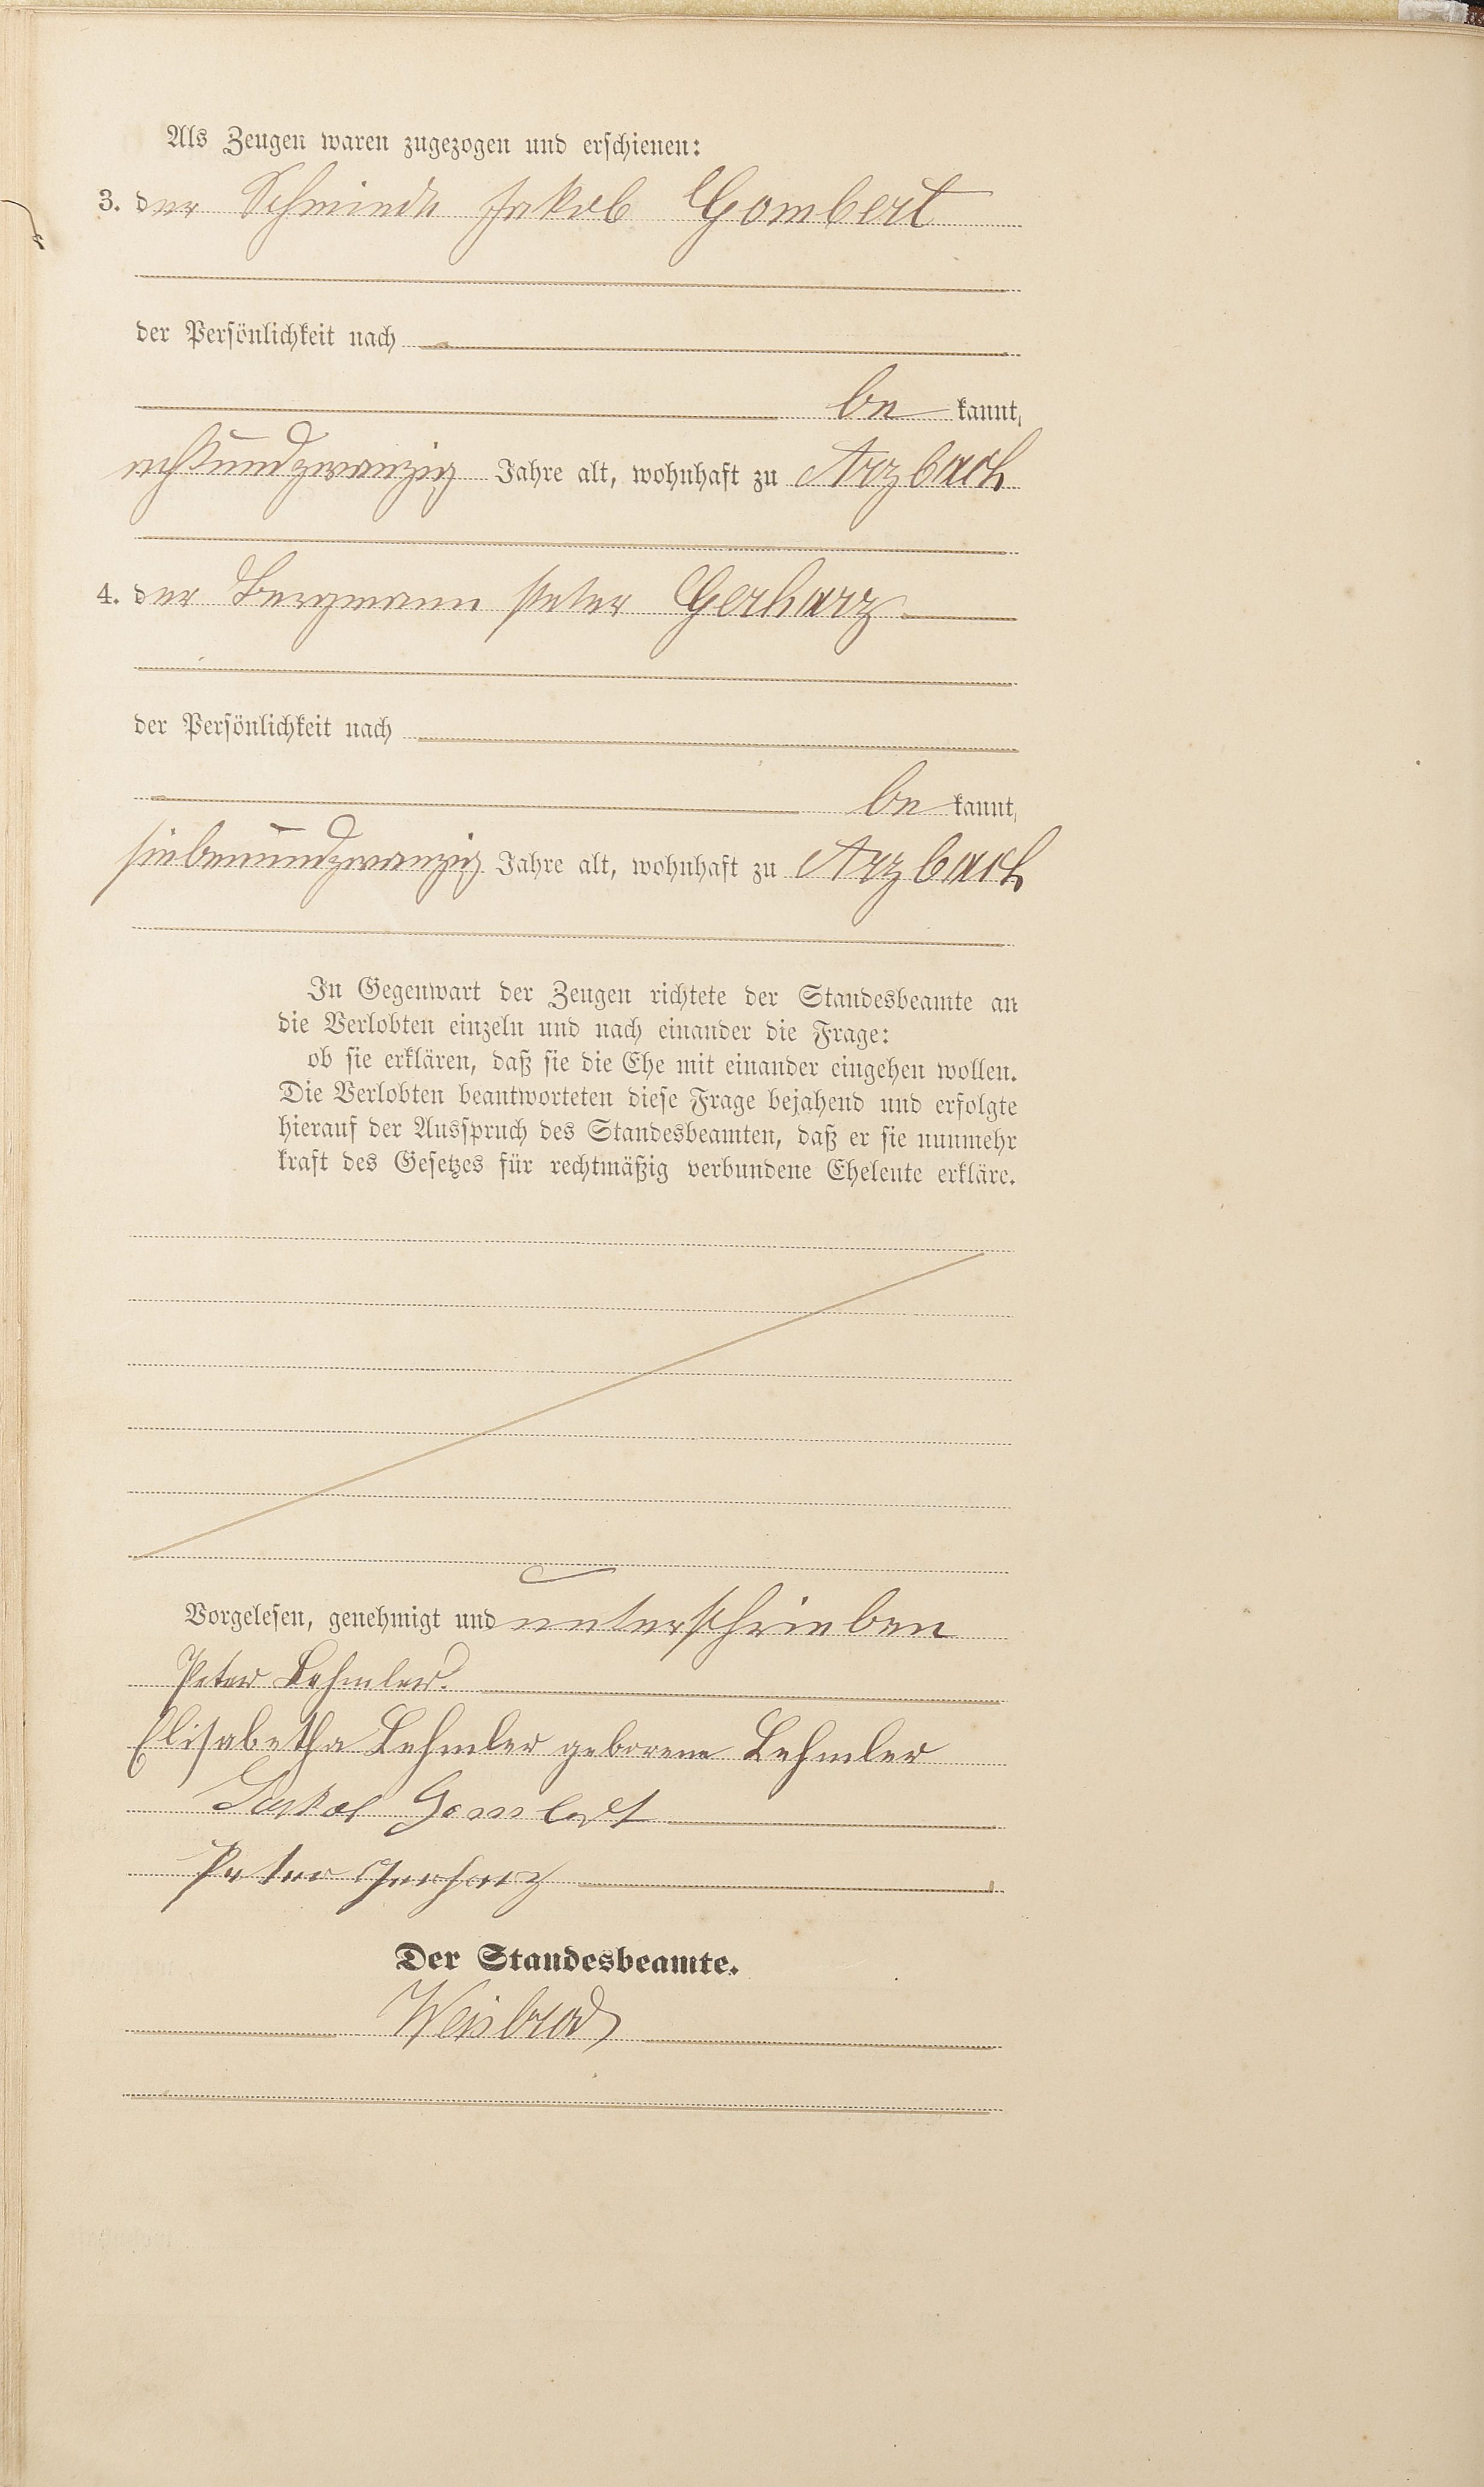 Als Zeugen waren zugezogen und erschienen:
3. der Schmiede Jakob Gombert
der Persönlichkeit nach
be kannt,
achtundzwanzig Jahre alt, wohnhaft zu Arzbach
4. der Bergmann Peter Gerharz
der Persönlichkeit nach
be kannt,
siebenundzwanzig Jahre alt, wohnhaft zu Arzbach
In Gegenwart der Zeugen richtete der Standesbeamte an
die Verlobten einzeln und nach einander die Frage:
ob sie erklären, daß sie die Ehe mit einander eingehen wollen.
Die Verlobten beantworteten diese Frage bejahend und erfolgte
hierauf der Ausspruch des Standesbeamten, daß er sie nunmehr
kraft des Gesetzes für rechtmäßig verbundene Eheleute erkläre.
Vorgelesen, genehmigt und unterschrieben
Peter Lehmler.
Elisabetha Lehmler geborene Lehmler
Jakob Gombert
Peter Gerharz
Der Standesbeamte.
Weisbrod